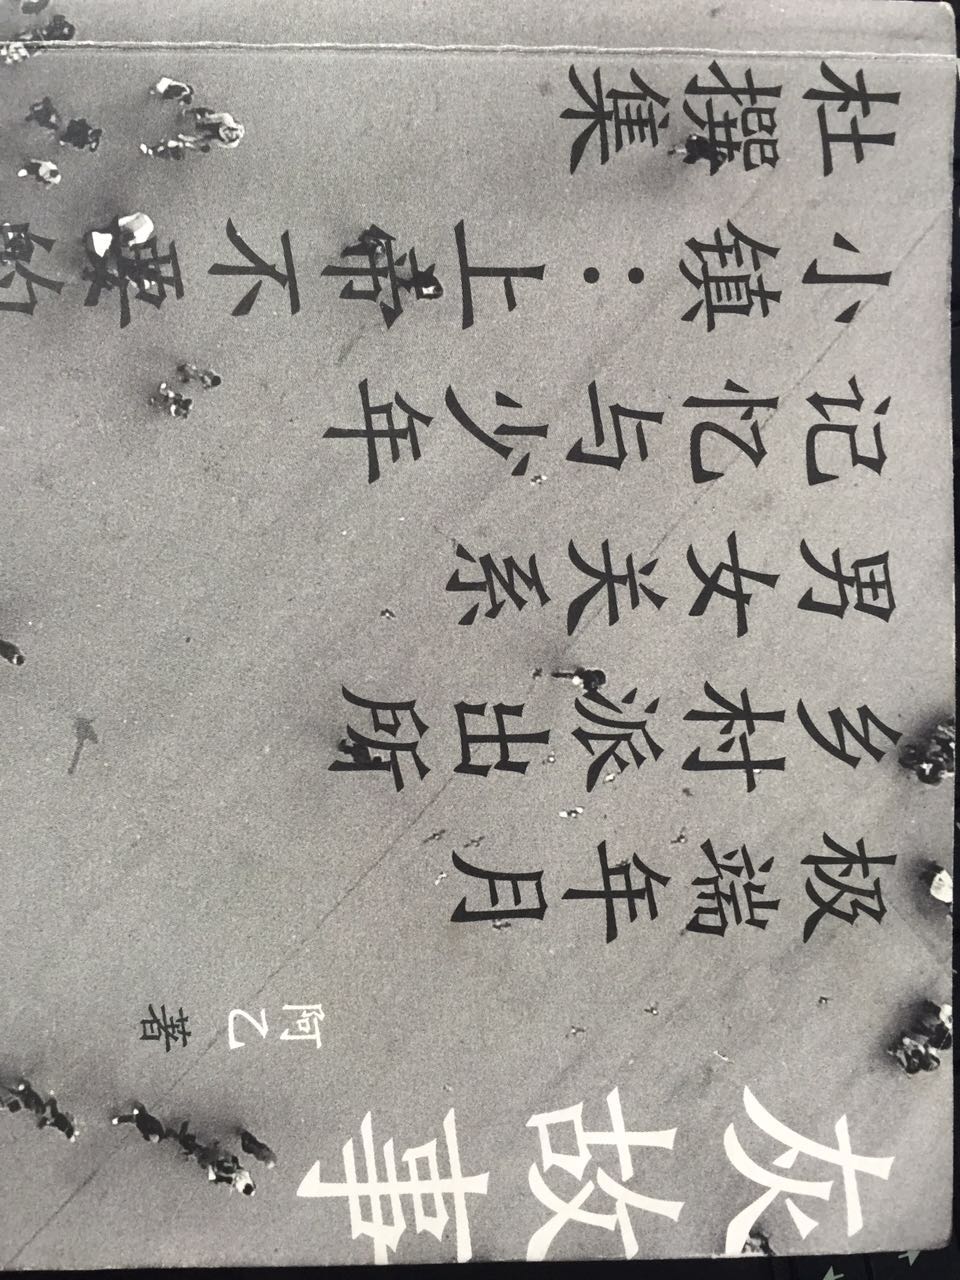 灰故事
阿乙 著
极端年月
乡村派出所
男女关系
记忆与少年
小镇：上帝不要的
杜撰集